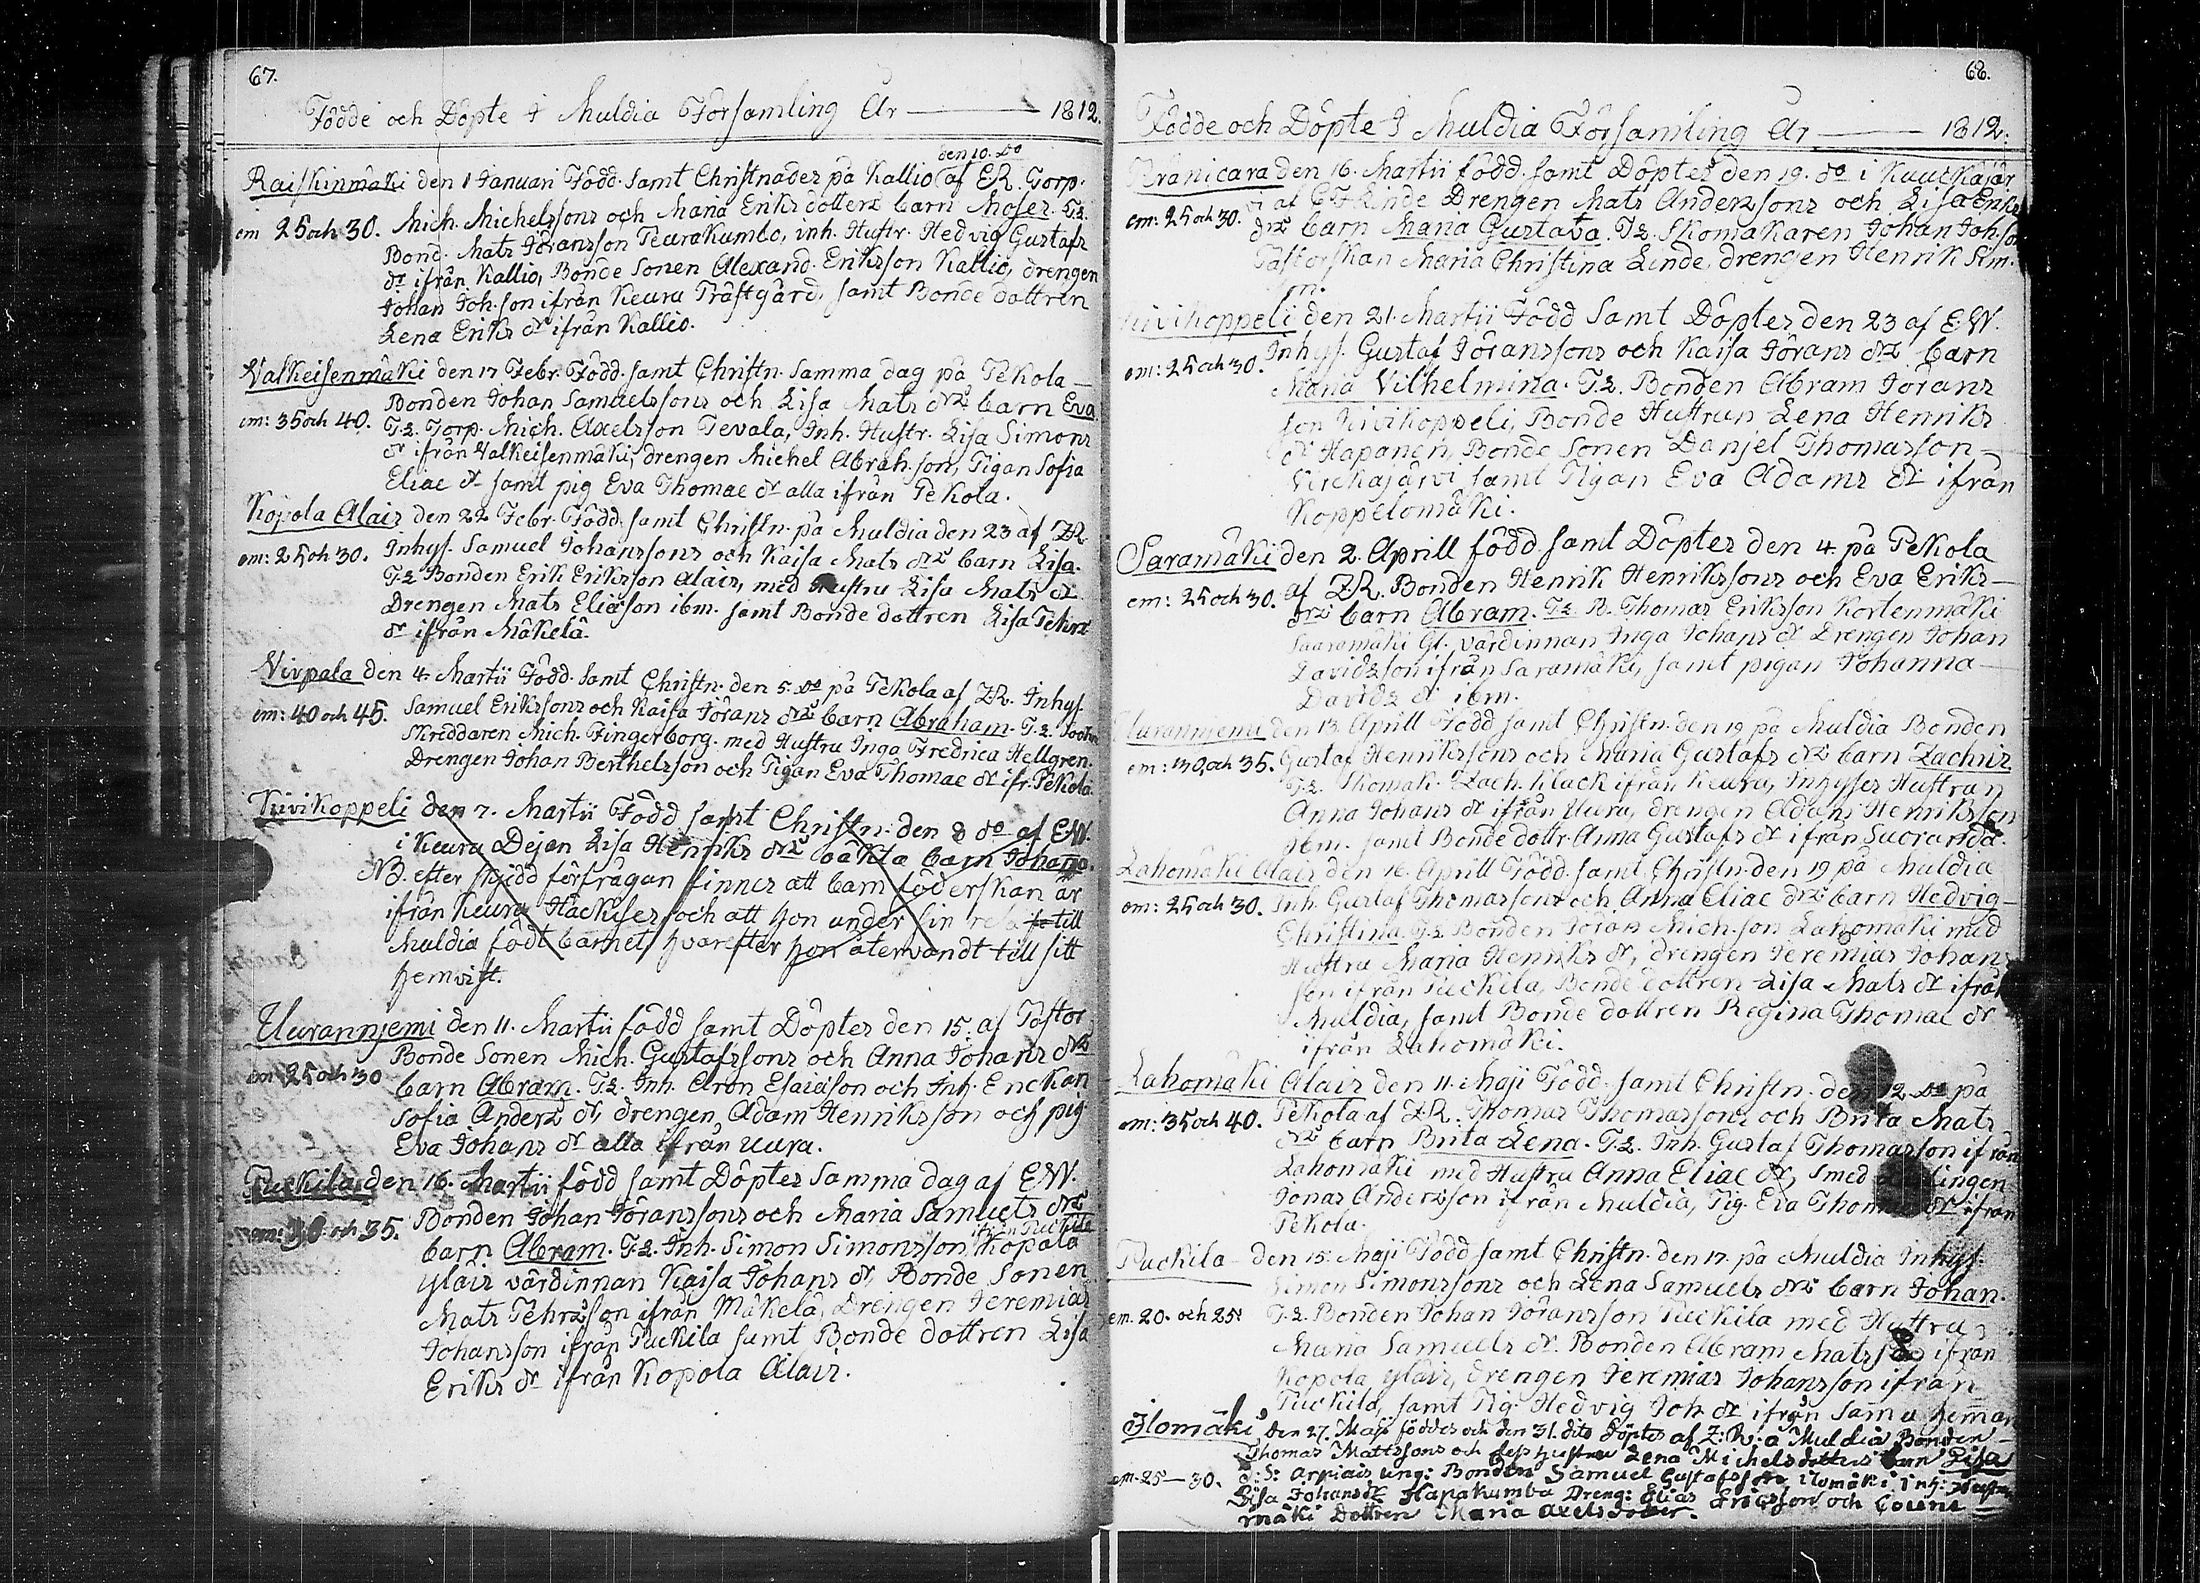 67.
Födde och Döpte I Muldia Församling År — 1812.
den 10. do
Raiskinmäki den 1 Januari Född samt Christnades på Kallio af E.R. Torp.
em 25 och 30. Mich. Michelssons och Maria Eriks dotters barn Moses. T.2.
Bond. Mats Göransson Teurakumbo, inh. Hustr. Hedvig Gustafs
dr ifrån Kallio, Bonde Sonen Alexand. Eriksson Kallio, drengen
Johan Joh.son ifrån Keuru Prästgård, samt Bonde dottren
Lena Eriks dr ifrån Kallio.
Valkeisenmäki den 17 Febr. Född samt Christn. Samma dag på Pekola
Bonden Johan Samuelssons och Lisa Mats drs barn Eva
em: 35 och 40. T.2. Torp. Mich. Axelsson Tevala, Inh. Hustr. Lisa Simons
dr ifrån Valkeisenmäki, drengen Michel Abrah.son, Pigan Sofia
Eliae dr samt pig Eva Thomae dr alla ifrån Pekola.
Kopola Alais den 22 Febr. Född samt Christn. på Muldia den 23 af Z.R.
em: 25 och 30. Inhys. Samuel Johanssons och Kaisa Mats drs barn Lisa.
T.2 Bonden Erik Eriksson Alais, med Hustru Lisa Mats dr
Drengen Mats Eliasson ibm. samt Bonde dottren Lisa Pehrs
dr ifrån Mäkelä.
Vivpala den 4 Martii Född samt Christn. den 5 do på Pekola af Z.R. Inhys.
em: 40 och 45. Samuel Erikssons och Kaisa Görans drs barn Abraham. T.2. Sockn
Skreddaren Mich. Fingerborg. med Hustru Inga Fredrica Hellgren.
Drengen Johan Berthelsson och Pigan Eva Thomae dr ifr. Pekola
Kivikoppeli den 7. Martii Född samt Christn. den 8 do af E.W.
i Keuru Dejan Lisa Henriks drs oäkta barn Johan.
NB. efter skjedd förfrågan finnes att barn föderskan är
ifrån Keuru Häckises och att hon under sin resa till
Muldia födt barnet, hvarefter hon återvändt till sitt
hemvist.
Uurannjemi den 11. Martii född samt Döptes den 15. af Pastor
Bonde Sonen Mich. Gustafssons och Anna Johans drs
em 25 och 30 barn Abram. T.2. Inh. Aron Esaiason och Inh. Enckan
Sofia Anders dr, drengen Adam Henriksson och pig
Eva Johans dr alla ifrån Uura.
Puckila den 16. Martii född samt Döptes Samma dag af E.W.
Bonden Johan Göranssons och Maria Samuels drs
em: 30 och 35. barn Abram. T.2. Inh. Simon Simonsson ifrån Puckila Kopola
Yläis värdinnan Kaisa Johans dr, Bonde Sonen
Mats Pehrsson ifrån Mäkelä, Drengen Jeremias
Johansson ifrån Puckila samt Bonde dottren Lisa
Eriks dr ifrån Kopola Alais.
68.
Födde och Döpte I Muldia Församling År — 1812.
den 16. Martii född samt Döptes den 19. do i
af Linde Drengen Mats Anderssons och Lisa Eriks
em: 25 och 30. drs barn Maria Gustava. T.2. Skomakaren Johan Joh.son
Pastorskan Maria Christina Linde, drengen Henrik Sim.
son.
Kivikoppeli den 21 Martii Född Samt Döptes den 23 af E.W.
em: 25 och 30. Inhys. Gustaf Göranssons och Kaisa Görans drs barn
Maria Vilhelmina. T.2. Bonden Abram Görans
son Kivikoppeli, Bonde Hustrun Lena Henriks
dr Hapanen, Bonde Sonen Danjel Thomasson
Virckajärvi samt Pigan Eva Adams dr ifrån
Koppelomäki.
Saramäki den 2 Aprill född samt Döptes den 4 på Pekola
em: 25 och 30. af Z.R. Bonden Henrik Henrikssons och Eva Eriks
drs barn Abram. T.2. B. Thomas Eriksson Kortenmäki
Saaramäki Gl. värdinnan Inga Johans dr Drengen Johan
Davidsson ifrån Saramäki, samt pigan Johanna
Davids dr ibm.
Uurannjemi den 13. Aprill Född samt Christn. den 19 på Muldia Bonden
em: 30 och 35. Gustaf Henrikssons och Maria Gustafs drs barn Zachris
T.2. Skomak. Zach. Klack ifrån Keuru, Inhysses Hustrun
Anna Johans dr ifrån Uura, drengen Adam Henriksson
ibm. samt Bonde dottr. Anna Gustafs dr ifrån Suoranda.
Lahomäki Alais den 16. Aprill Född samt Christn. den 19 på Muldia
em: 25 och 30. Inh. Gustaf Thomassons och Anna Eliae drs barn Hedvig
Christina. T.2. Bonden Göran Mich.son Lahomäki med
Hustru Maria Henriks dr, drengen Jeremias Johans
son ifrån Puckila, Bonde dottren Lisa Mats dr ifrån
Muldia, samt Bonde dottren Regina Thomae dr
ifrån Lahomäki.
Lahomäki Alais den 11. Maji Född samt Christn. den 12 do på
em: 35 och 40. Pekola af Z.R. Thomas Thomassons och Brita Mats
drs barn Brita Lena. T.2. Inh. Gustaf Thomasson ifrån
Lahomäki med Hustru Anna Eliae dr, Smed
Jonas Andersson ifrån Muldia, Pig. Eva Thomae dr ifrån
Pekola.
Puckila den 15. Maji Född samt Christn. den 17. på Muldia Inhys.
Simon Simonssons och Lena Samuels drs barn Johan.
em. 20. och 25. T.2. Bonden Johan Göransson Puckila med Hustru
Maria Samuels dr. Bonden Abram Matsson ifrån
Kopola Yläis, drengen Jeremias Johansson ifrån
Puckila, samt Pig. Hedvig Joh. dr ifrån samma heman
Ilomäki den 27. Maji föddes och den 31. dito Döptes af Z: R: a Muldia Bonden
Thomas Mattssons och dess hustru Lena Michelsdotters barn Lisa
em. 25—30. Arpiais ung: Bonden Samuel Gustafsson Ilomäki Inh: Hustru
Lisa Johans dr Hapakumbu Dreng: Elias Ericsson och
mäki Dottren Maria Axelsdotter.